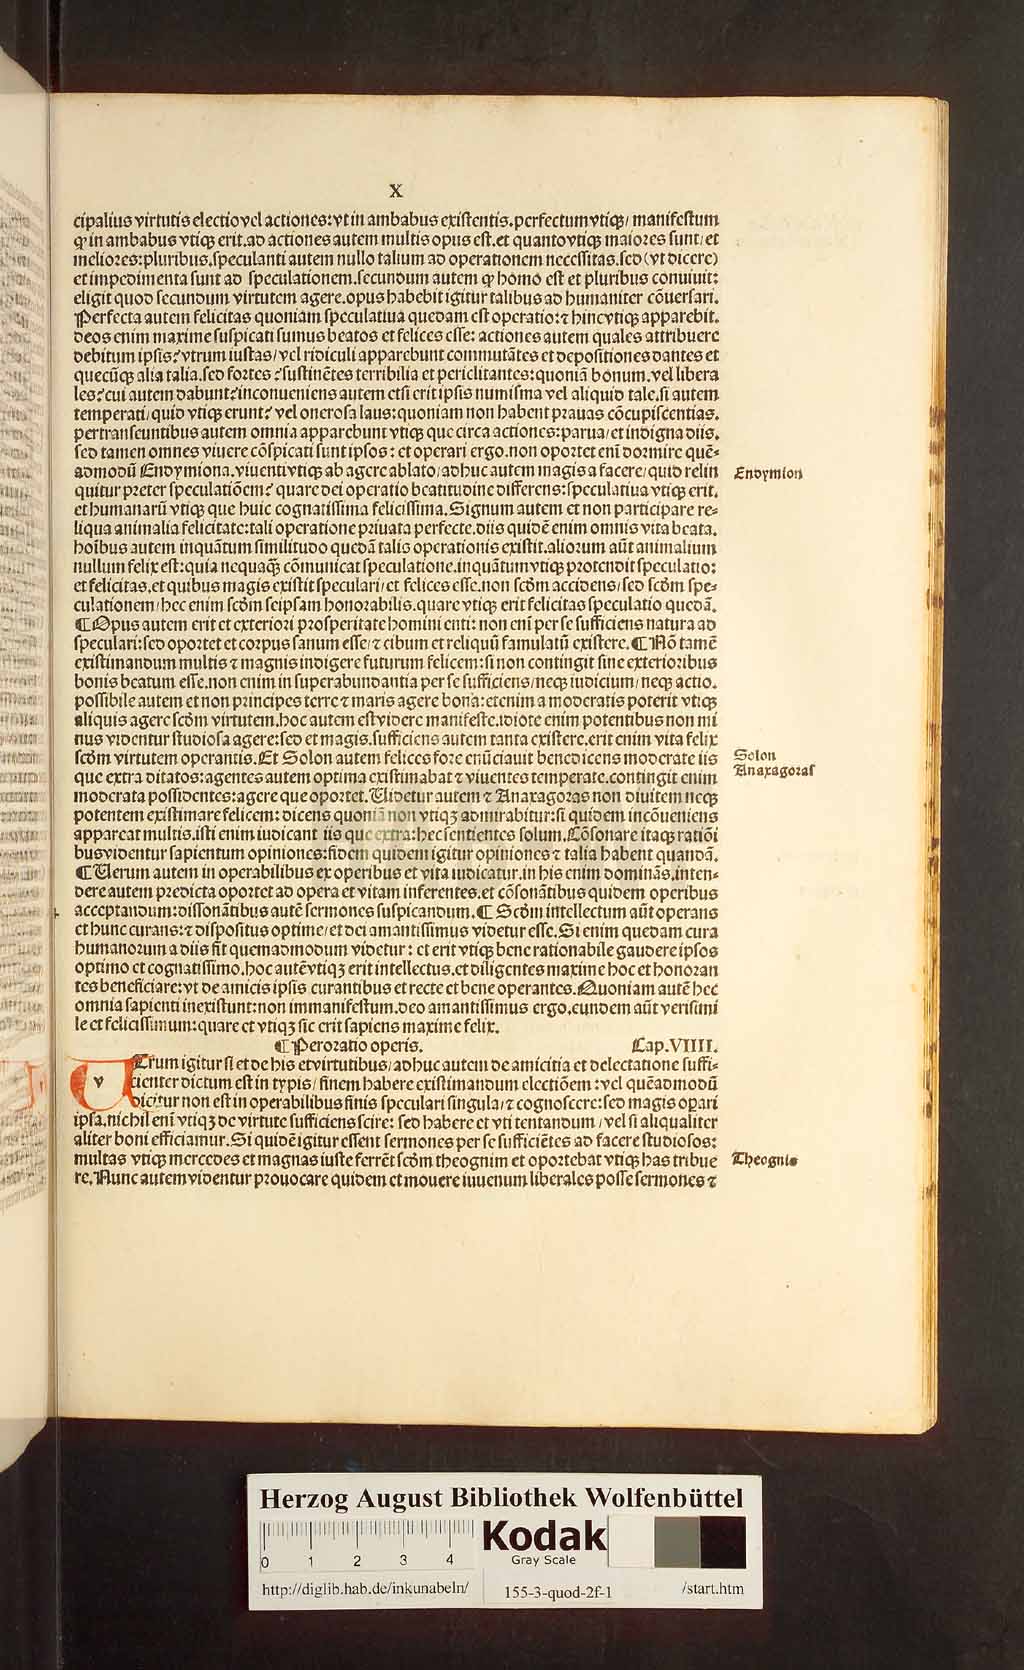 X
cipalius virtutis electio vel actiones: vt in ambabus existentis. perfectum vtiqꝫ/ manifestum
ꝙ in ambabus vtiqꝫ erit. ad actiones autem multis opus est. et quanto vtiqꝫ maiores sunt/ et
meliores: pluribus. speculanti autem nullo talium ad operationem necessitas. sed (vt dicere)
et impedimenta sunt ad speculationem. secundum autem ꝙ homo est et pluribus conuiuit:
eligit quod secundum virtutem agere. opus habebit igitur talibus ad humaniter cōuersari.
Perfecta autem felicitas quoniam speculatiua quedam est operatio: ⁊ hinc vtiqꝫ apparebit.
deos enim maxime suspicati sumus beatos et felices esse: actiones autem quales attribuere
debitum ipsis? vtrum iustas/ vel ridiculi apparebunt commutātes et depositiones dantes et
quecūqꝫ alia talia. sed fortes? sustinētes terribilia et periclitantes: quoniā bonum. vel libera
les? cui autem dabunt? inconueniens autem etsi erit ipsis numisma vel aliquid tale. si autem
temperati/ quid vtiqꝫ erunt? vel onerosa laus: quoniam non habent prauas cōcupiscentias.
pertranseuntibus autem omnia apparebunt vtiqꝫ que circa actiones: parua/ et indigna diis.
sed tamen omnes viuere cōspicati sunt ipsos: et operari ergo. non oportet enī dormire quē-
admodū Endymiona. viuenti vtiqꝫ ab agere ablato/ adhuc autem magis a facere/ quid relin
quitur preter speculatiōem? quare dei operatio beatitudine differens: speculatiua vtiqꝫ erit.
et humanarū vtiqꝫ que huic cognatissima felicissima. Signum autem et non participare re-
liqua animalia felicitate: tali operatione priuata perfecte. diis quidē enim omnis vita beata.
hoībus autem inquātum similitudo quedā talis operationis existit. aliorum aūt animalium
nullum felix est: quia nequaqꝫ cōmunicat speculatione. inquātum vtiqꝫ protendit speculatio:
et felicitas. et quibus magis existit speculari/ et felices esse. non scđm accidens/ sed scđm spe-
culationem/ hec enim scđm seipsam honorabilis. quare vtiqꝫ erit felicitas speculatio quedā.
¶ Opus autem erit et exteriori prosperitate homini enti: non enī per se sufficiens natura ad
speculari: sed oportet et corpus sanum esse/ ⁊ cibum et reliquū famulatū existere. ¶ Nō tamē
existimandum multis ⁊ magnis indigere futurum felicem: si non contingit sine exterioribus
bonis beatum esse. non enim in superabundantia per se sufficiens/ neqꝫ iudicium/ neqꝫ actio.
possibile autem et non principes terre ⁊ maris agere bona: etenim a moderatis poterit vtiqꝫ
aliquis agere scđm virtutem. hoc autem est videre manifeste. idiote enim potentibus non mi
nus videntur studiosa agere: sed et magis. sufficiens autem tanta existere. erit enim vita felix
scđm virtutem operantis. Et Solon autem felices fore enūciauit bene dicens moderate iis
que extra ditatos: agentes autem optima existimabat ⁊ viuentes temperate. contingit enim
moderata possidentes: agere que oportet. Videtur autem ⁊ Anaxagoras non diuitem neqꝫ
potentem existimare felicem: dicens quoniā non vtiqꝫ admirabitur: si quidem incōueniens
appareat multis. isti enim iudicant iis que extra: hec sentientes solum. Cōsonare itaqꝫ ratiōi
bus videntur sapientum opiniones: fidem quidem igitur opiniones ⁊ talia habent quandā.
¶ Uerum autem in operabilibus ex operibus et vita iudicatur. in his enim dominās. inten-
dere autem predicta oportet ad opera et vitam inferentes. et cōsonātibus quidem operibus
acceptandum: dissonātibus autē sermones suspicandum. ¶ Scđm intellectum aūt operans
et hunc curans: ⁊ dispositus optime/ et dei amantissimus videtur esse. Si enim quedam cura
humanorum a diis fit quemadmodum videtur: et erit vtiqꝫ bene rationabile gaudere ipsos
optimo et cognatissimo. hoc autē vtiqꝫ erit intellectus. et diligentes maxime hoc et honoran
tes beneficiare: vt de amicis ipsis curantibus et recte et bene operantes. Quoniam autē hec
omnia sapienti inexistunt: non immanifestum. deo amantissimus ergo. eundem aūt verisimi
le et felicissimum: quare et vtiqꝫ sic erit sapiens maxime felix.
¶ Peroratio operis. Cap. VIIII.
VErum igitur si et de his et virtutibus/ adhuc autem de amicitia et delectatione suffi-
cienter dictum est in typis/ finem habere existimandum electiōem: vel quēadmodū
dicitur non est in operabilibus finis speculari singula/ ⁊ cognoscere: sed magis oꝑari
ipsa. nichil enī vtiqꝫ de virtute sufficiens scire: sed habere et vti tentandum/ vel si aliqualiter
aliter boni efficiamur. Si quidē igitur essent sermones per se sufficiētes ad facere studiosos:
multas vtiqꝫ mercedes et magnas iuste ferrēt scđm theognim et oportebat vtiqꝫ has tribue
re. Nunc autem videntur prouocare quidem et mouere iuuenum liberales posse sermones ⁊
Endymion
Solon
Anaxagoras
Theognis
Herzog August Bibliothek Wolfenbüttel
0 1 2 3 4
Kodak
Gray Scale
http://diglib.hab.de/inkunabeln/ 155-3-quod-2f-1 /start.htm